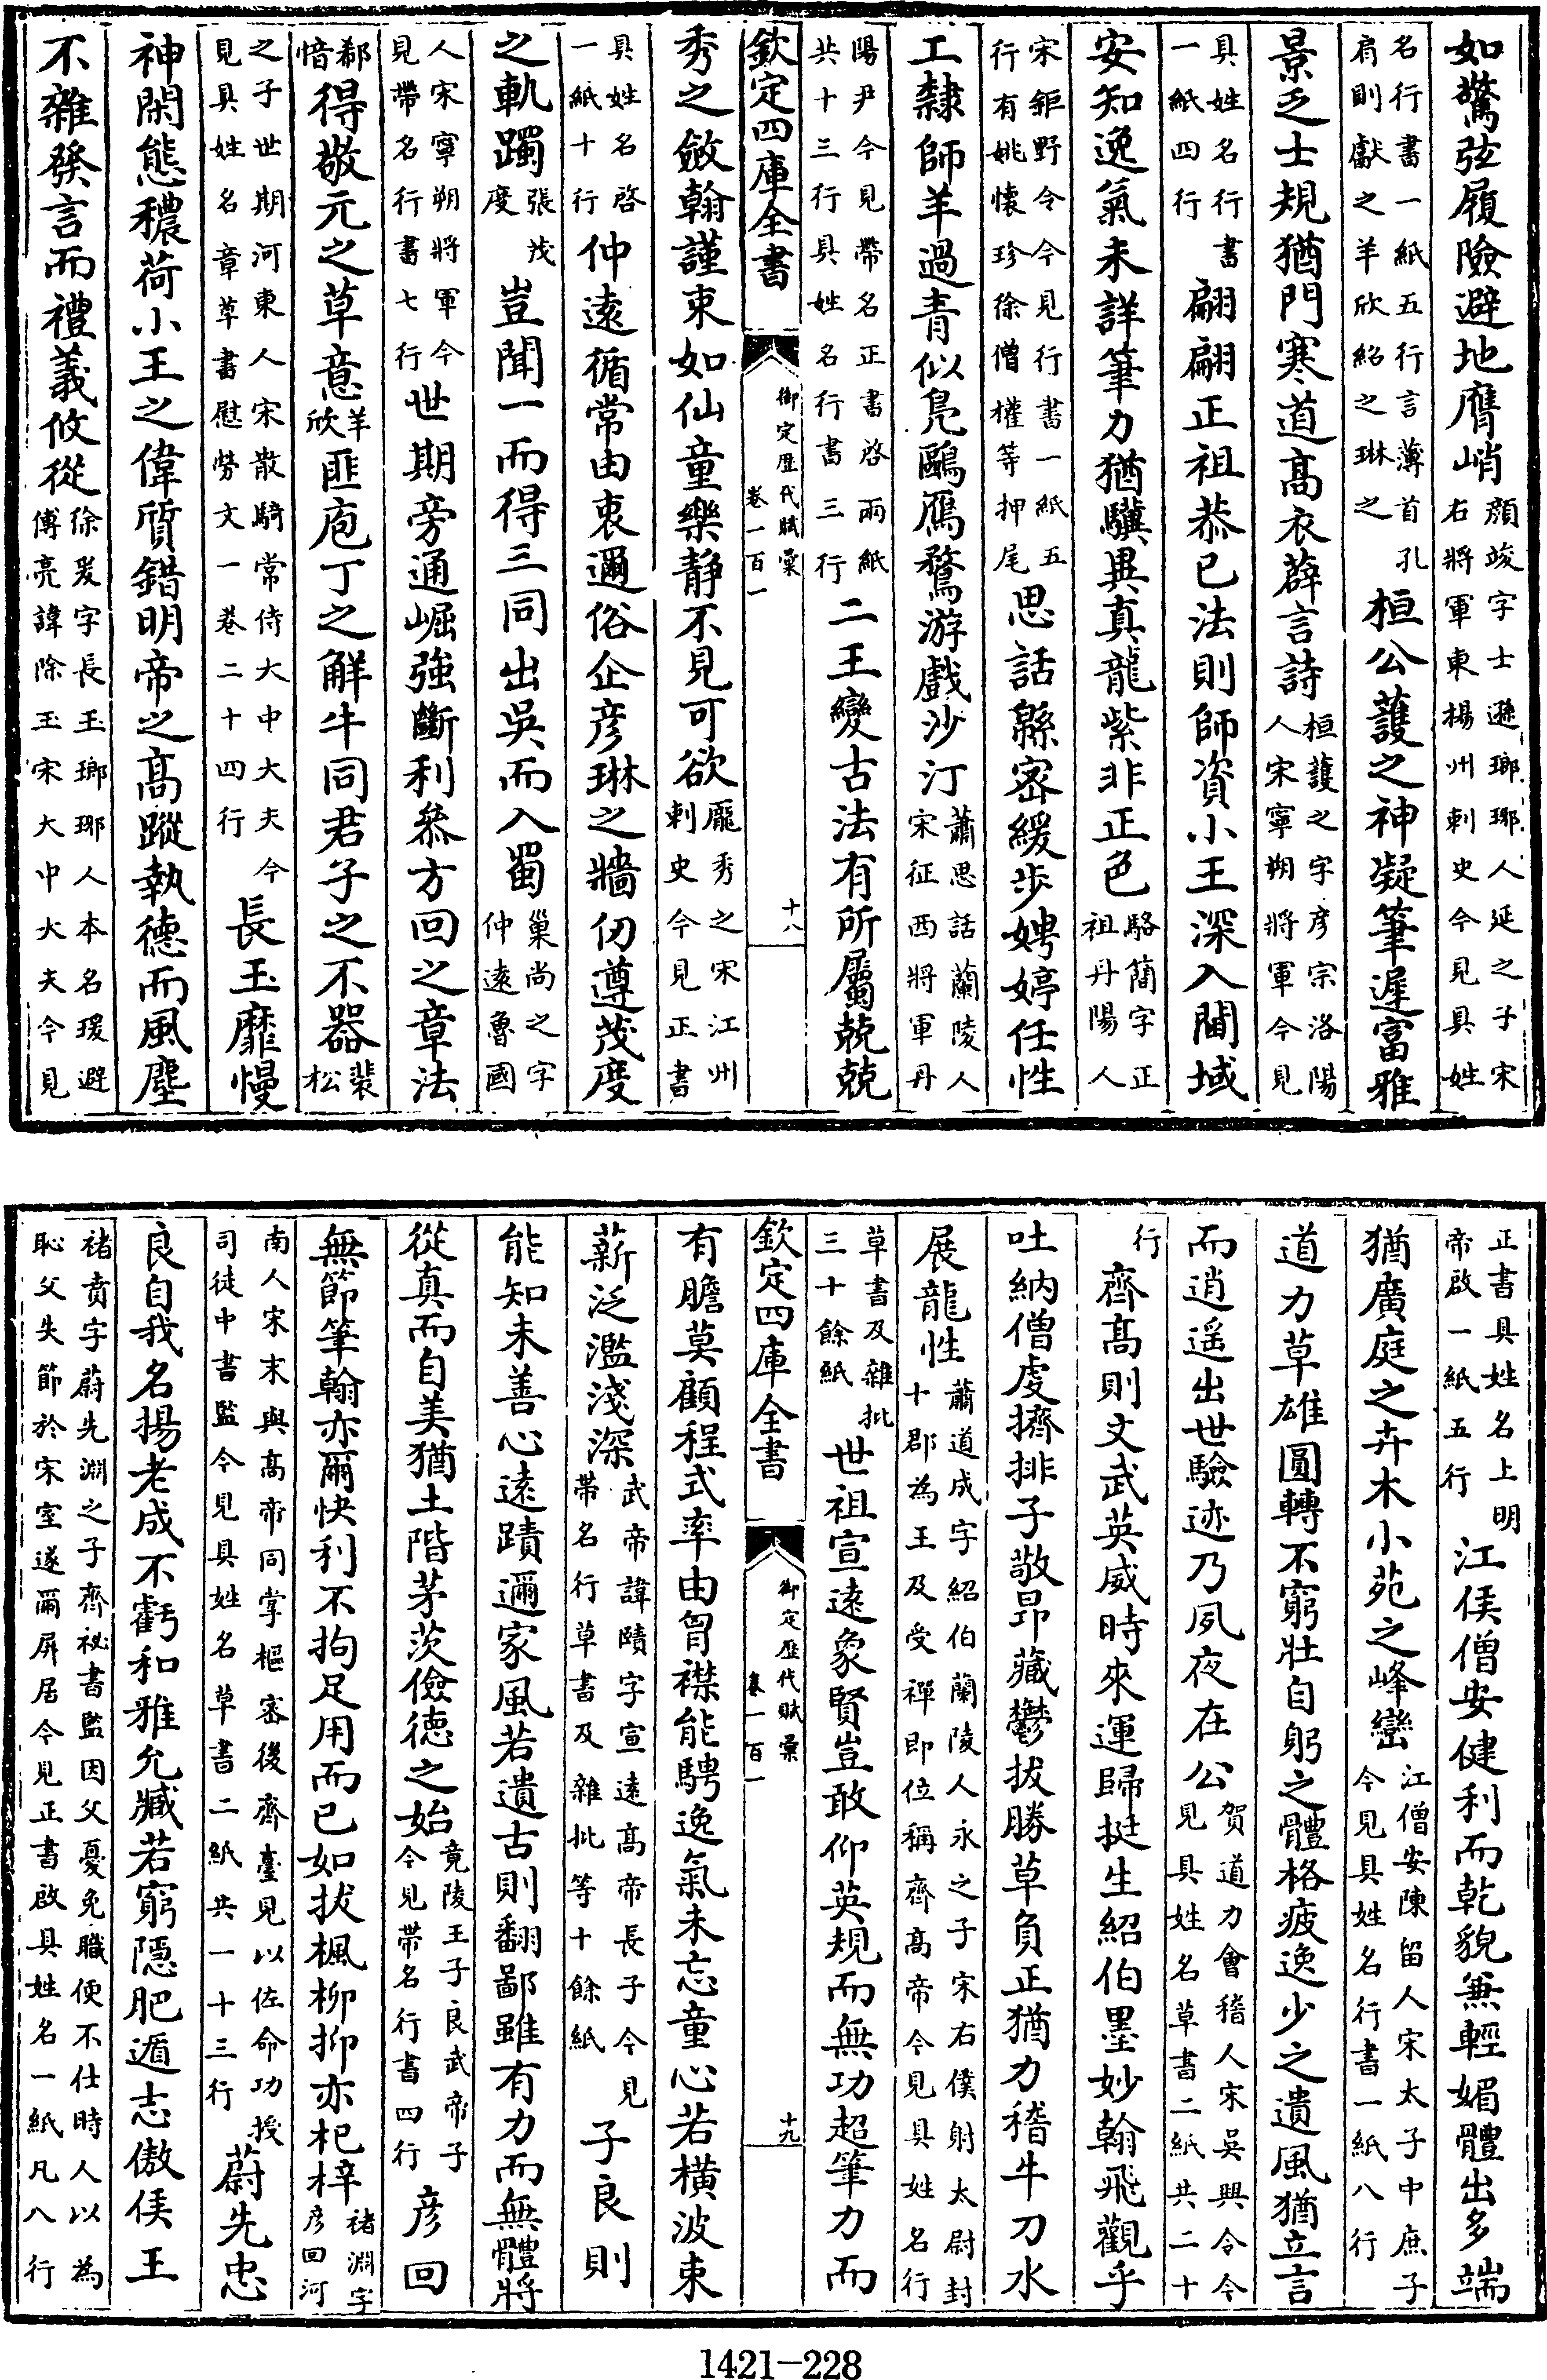 如驚弦履險避地膺峭顔竣字士遜瑯琊人延之子宋右將軍東楊州刺史今見具姓
名行書一紙五行言薄首孔肩則獻之羊欣紹之琳之桓公䕶之神凝筆遲富雅
景乏士規猶門寒道髙衣薜言詩桓䕶之字彦宗洛陽人宋寧朔將軍今見
具姓名行書一紙四行翩翩正祖恭已法則師資小王深入閫域
安知逸氣未詳筆力猶驥異真龍紫非正色駱簡字正祖丹陽人
宋鉅野令今見行書一紙五行有姚懐珍徐僧權等押尾思話緜宻緩步娉婷任性
工隸師羊過青似鳬鷗鴈鶩游戲沙汀蕭思話蘭陵人宋征西將軍丹
陽尹今見帶名正書啓兩紙共十三行具姓名行書三行二王變古法有所屬兢兢
欽定四庫全書 御定歴代賦彚 卷一百一 十八
秀之斂翰謹束如仙童樂静不見可欲龎秀之宋江州刺史今見正書
具姓名啓一紙十行仲逺循常由衷邇俗企彦琳之牆仞遵茂度
之軌躅張茂度豈聞一而得三同出吳而入蜀巢尚之字仲逺魯國
人宋寧朔將軍今見帶名行書七行世期旁通崛強斷利叅方回之章法
郗愔得敬元之草意羊欣匪庖丁之解牛同君子之不器裴松
之子世期河東人宋散騎常侍大中大夫今見具姓名章草書慰勞文一巻二十四行長玉靡慢
神閑態穠荷小王之偉質錯明帝之髙蹤執德而風塵
不雜發言而禮義攸從徐爰字長玉瑯琊人本名瑗避傅亮諱除玉宋大中大夫今見
正書具姓名上明帝啟一紙五行江僕僧安健利而乾貌兼輕媚體出多端
猶廣庭之卉木小苑之峰巒江僧安陳留人宋太子中庶子今見具姓名行書一紙八行
道力草雄圓轉不窮壯自躬之體格疲逸少之遺風猶立言
而逍遥出世驗迹乃夙夜在公賀道力會稽人宋吳興令今見具姓名草書二紙共二十
行齊髙則文武英威時來運歸挺生紹伯墨妙翰飛觀乎
吐納僧虔擠排子敬昂藏鬱拔勝草負正猶力稽牛刀水
展龍性蕭道成字紹伯蘭陵人永之子宋右僕射太尉封十郡為王及受禪即位稱齊髙帝今見具姓名行
草書及雜批三十餘紙世祖宣逺象賢豈敢仰英規而無功超筆力而
欽定四庫全書 御定歴代賦彚 卷一百一 十九
有膽莫顧程式率由胷襟能騁逸氣未忘童心若横波束
薪泛濫淺深武帝諱賾字宣逺髙帝長子今見帶名行草書及雜批等十餘紙子良則
能知未善心逺蹟邇家風若遺古則翻鄙雖有力而無體將
從真而自美猶土階茅茨儉徳之始竟陵王子良武帝子今見帶名行書四行彦回
無節筆翰亦爾快利不拘足用而已如拔楓栁抑亦杞梓禇淵字彦回河
南人宋末與髙帝同掌樞宻後齊臺見以佐命功授司徒中書監今見具姓名草書二紙共一十三行蔚先忠
良自我名揚老成不虧和雅允臧若窮隠肥遁志傲侯王
禇賁字蔚先淵之子齊祕書監因父憂免職便不仕時人以為恥父失節於宋室遂爾屏居今見正書啟具姓名一紙凡八行
1421-228